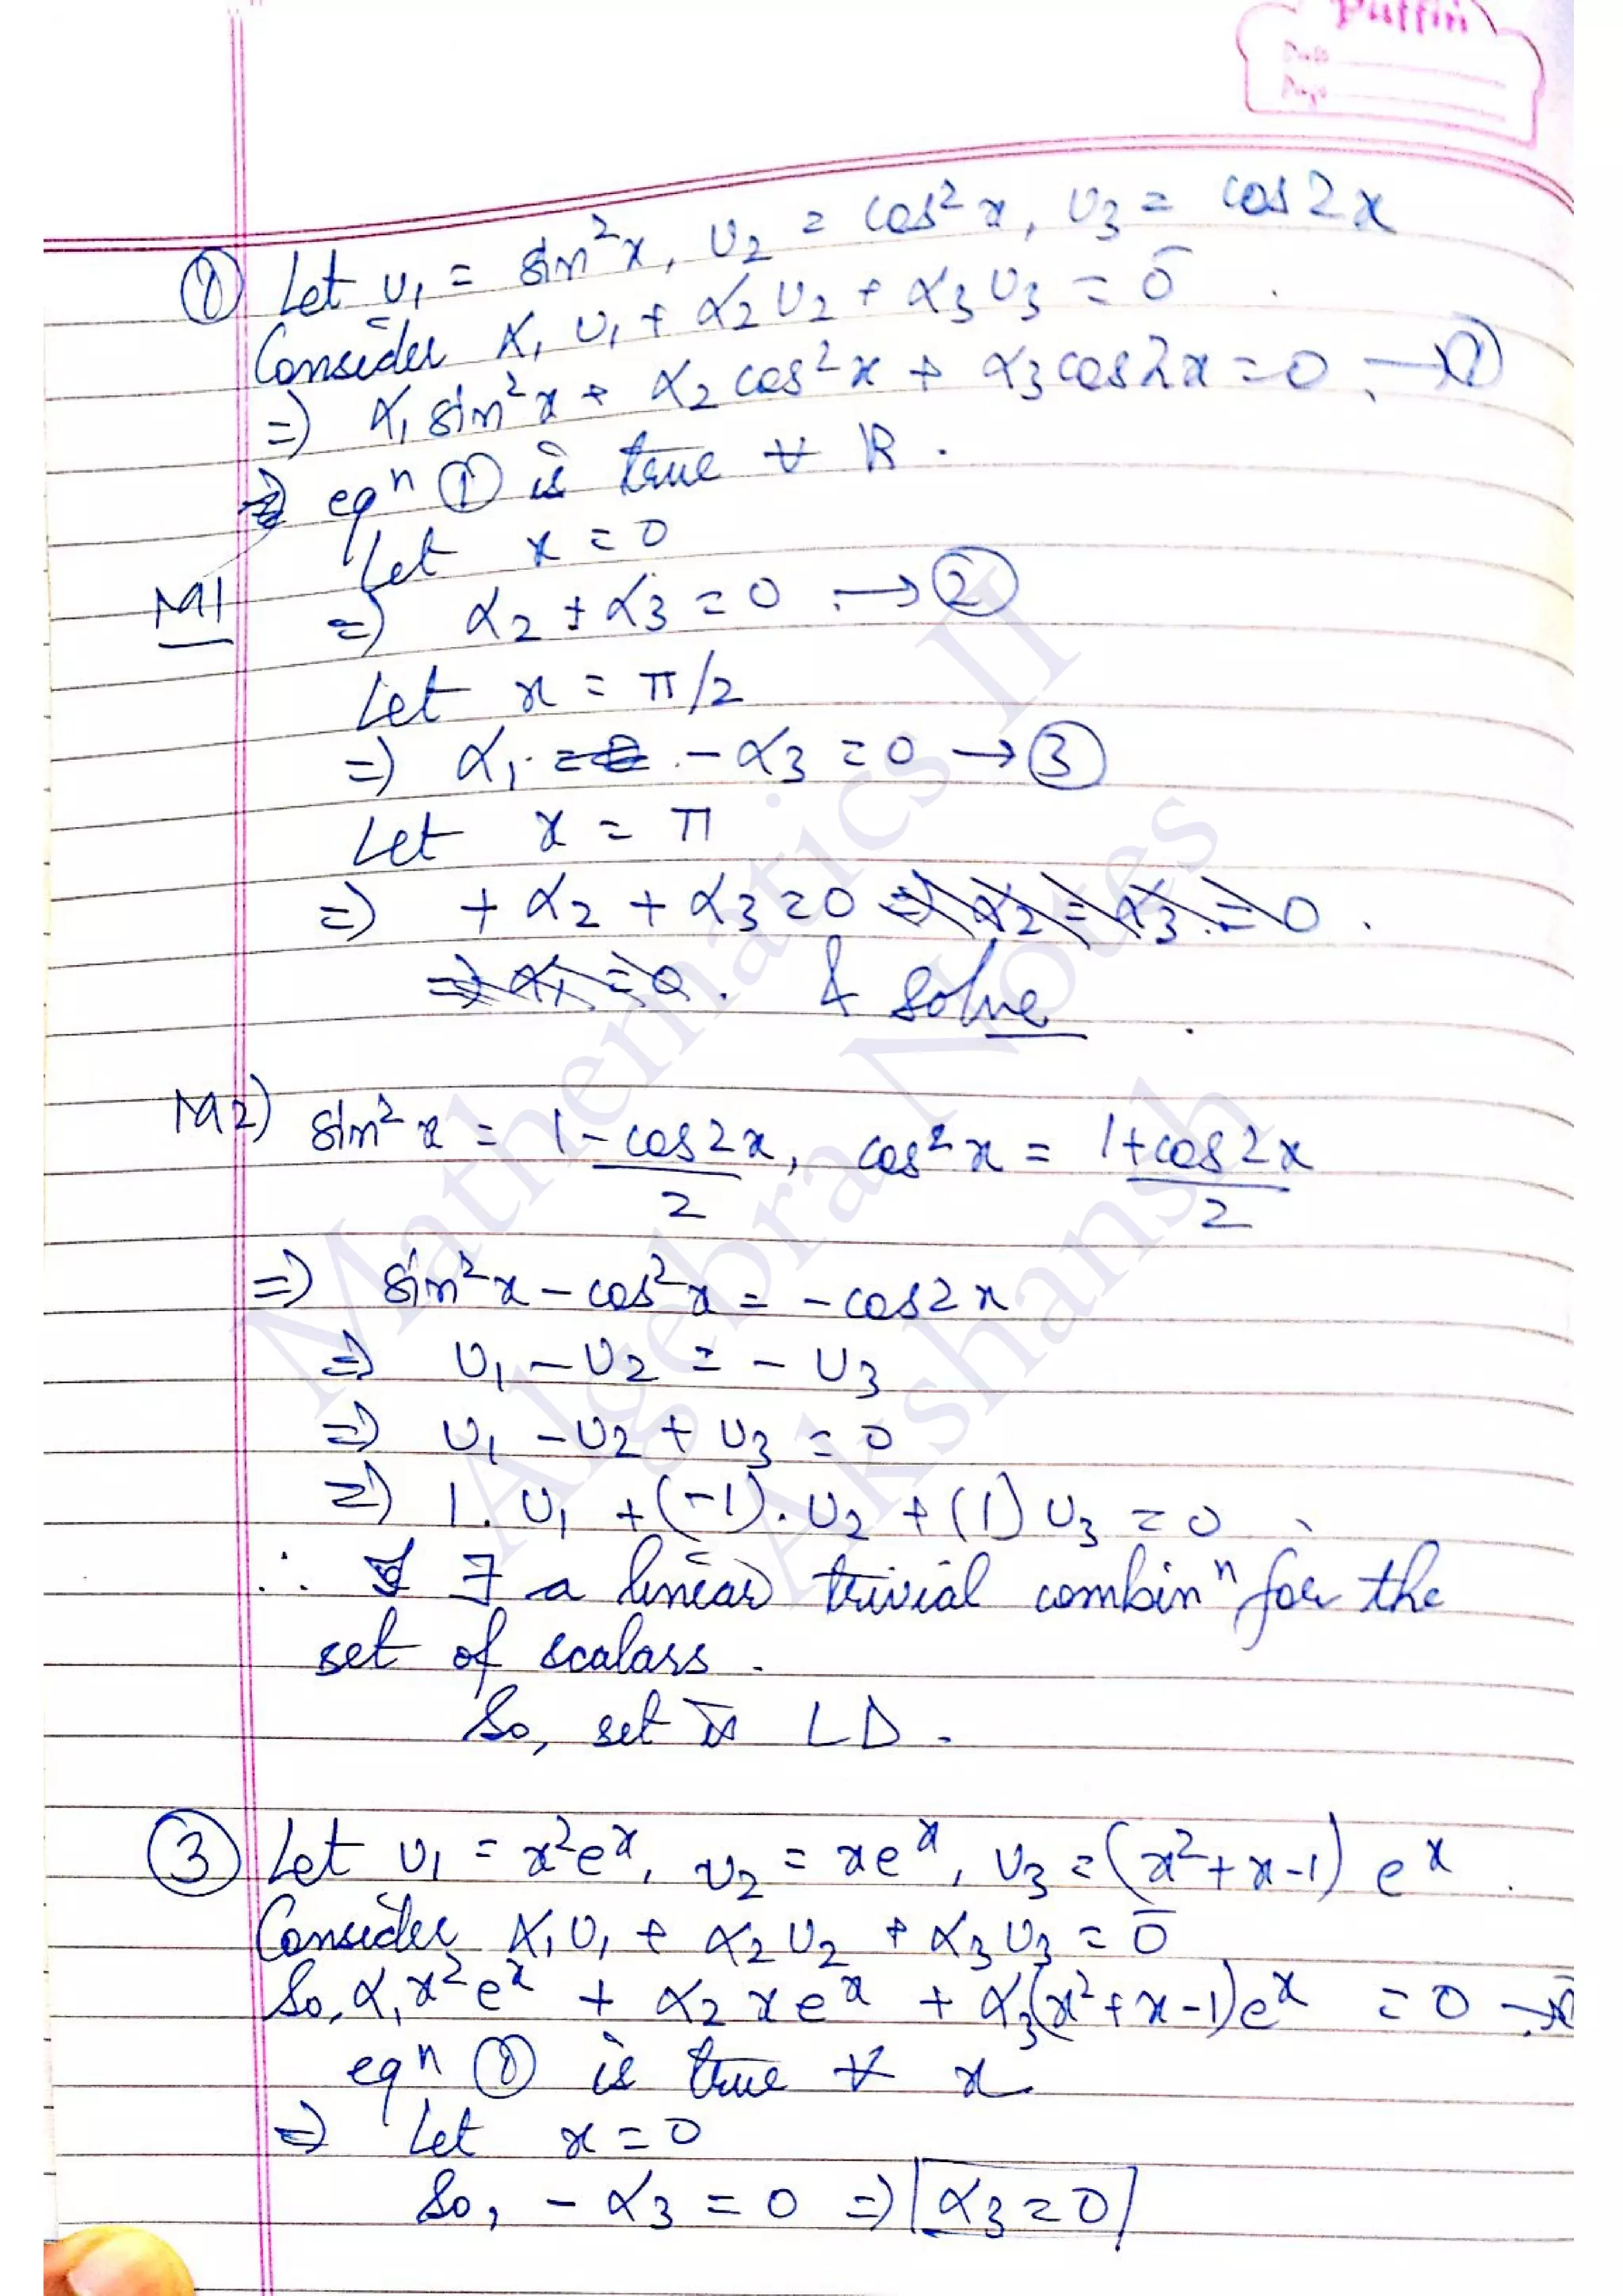 Puffin
Date
Page
① Let υ₁ = sin²x, υ₂ = cos²x, υ₃ = cos2x
Consider α₁υ₁ + α₂υ₂ + α₃υ₃ = 0̄
⇒) α₁ sin²x + α₂ cos²x + α₃ cos2x = 0 → ①
eqⁿ ① is true ∀ ℝ.
Let x = 0
M1 ⇒) α₂ + α₃ = 0 → ②
Let x = π/2
⇒) α₁ - α₃ = 0 → ③
Let x = π
⇒) + α₂ + α₃ = 0 ⇒) α₂ = α₃ = 0.
⇒) α₁ = 0. & solve
M2) sin²x = 1 - cos2x/2, cos²x = 1 + cos2x/2
⇒) sin²x - cos²x = - cos2x
⇒) υ₁ - υ₂ = - υ₃
⇒) υ₁ - υ₂ + υ₃ = 0
⇒) 1. υ₁ + (-1). υ₂ + (1) υ₃ = 0
∴ ∃ a linear trivial combinⁿ for the
set of scalars.
So, set is LD.
③ Let υ₁ = x²eˣ, υ₂ = xeˣ, υ₃ = (x² + x - 1) eˣ.
Consider α₁υ₁ + α₂υ₂ + α₃υ₃ = 0̄
So, α₁x²eˣ + α₂xeˣ + α₃(x² + x - 1)eˣ = 0 → ①
eqⁿ ① is true ∀ x
⇒) Let x = 0
So, - α₃ = 0 ⇒) α₃ = 0
Mathematics II
Algebra Notes
Akshansh